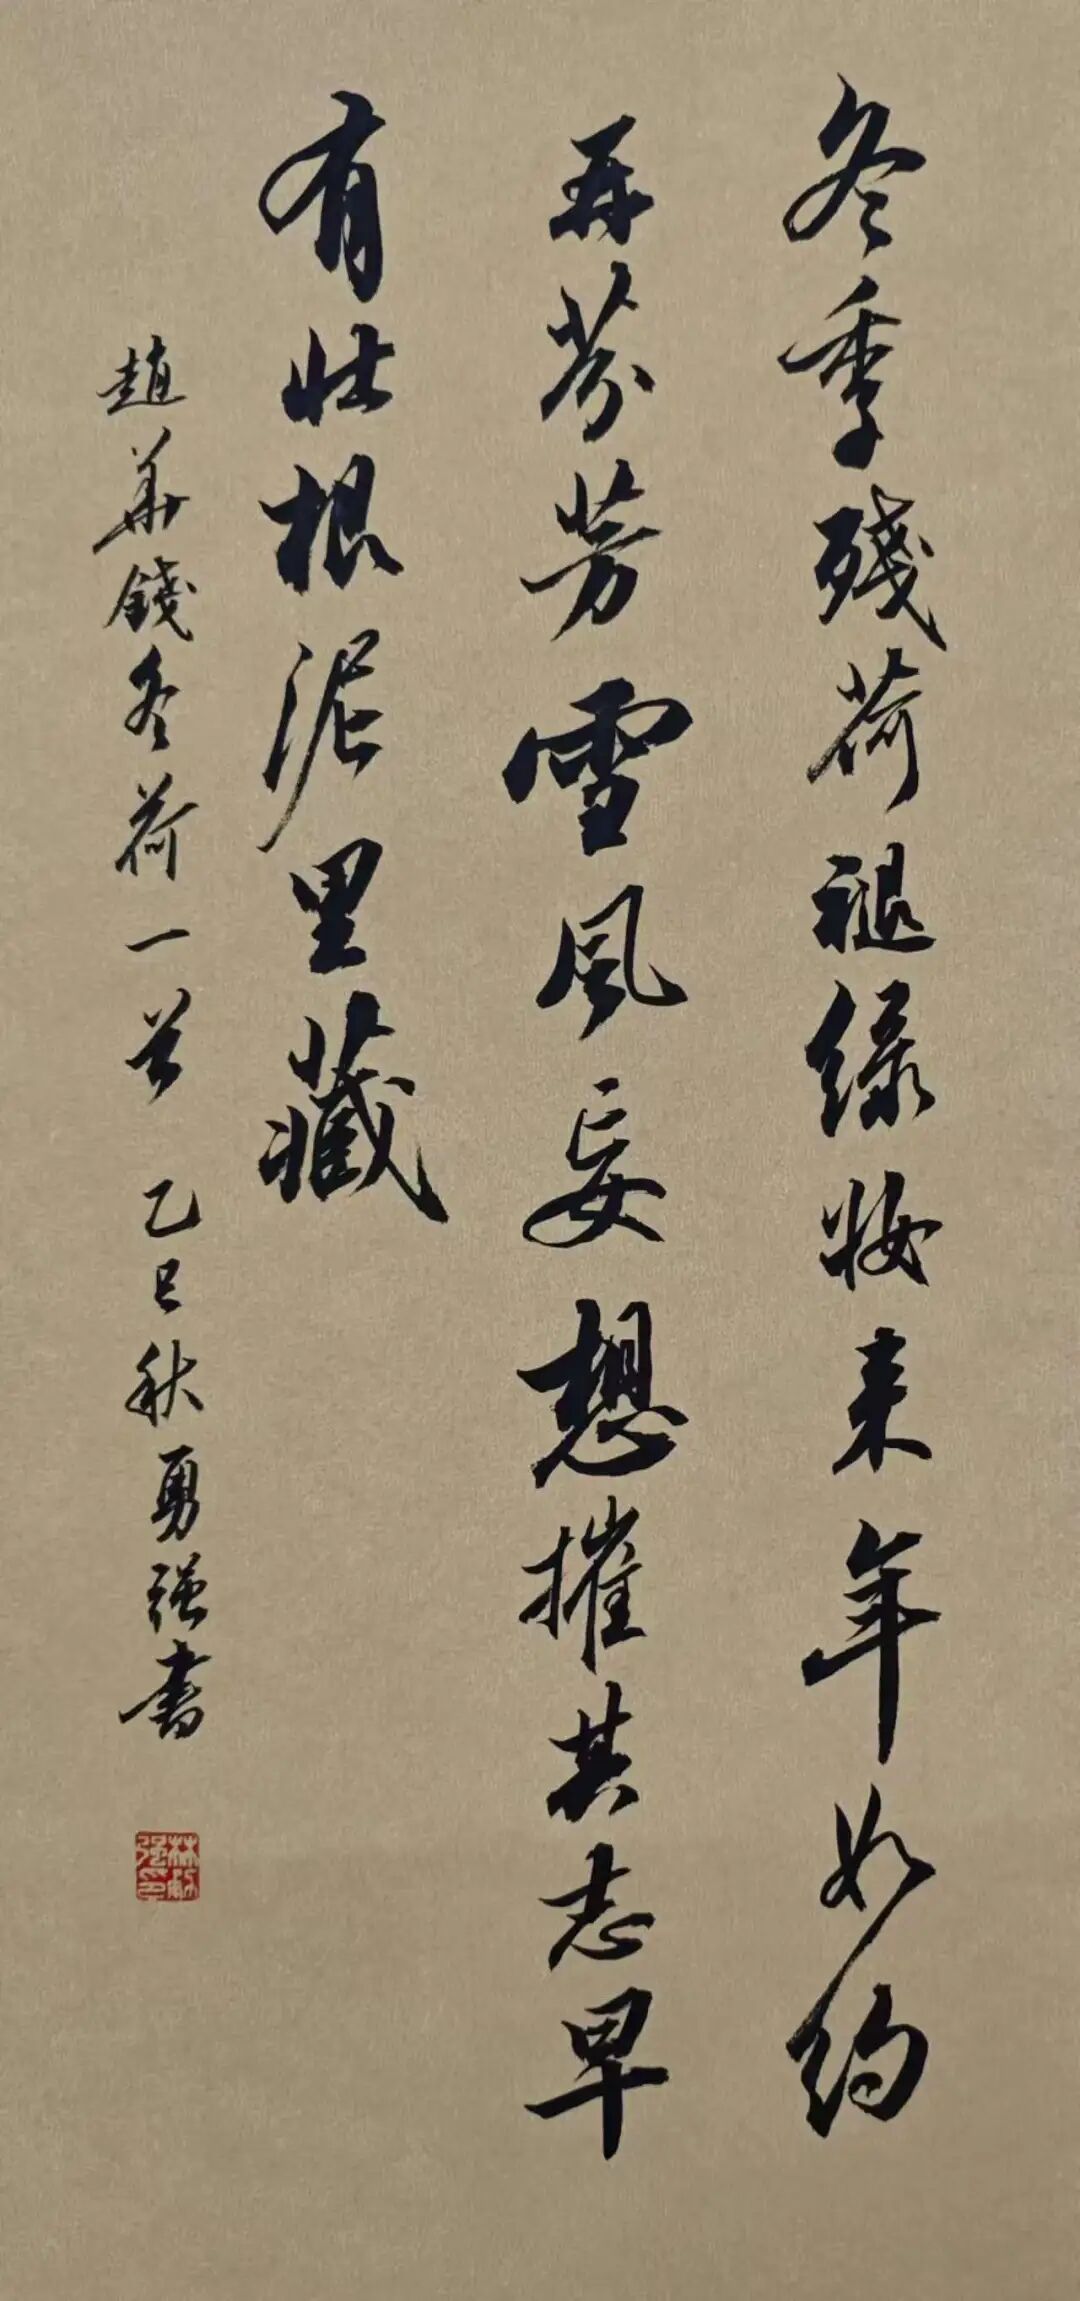 冬季殘荷褪绿妝来年如约
再芬芳雪風妄想摧其志早
有壮根泥里藏
趙華錢冬荷一首 乙巳秋勇强書
林勇强印